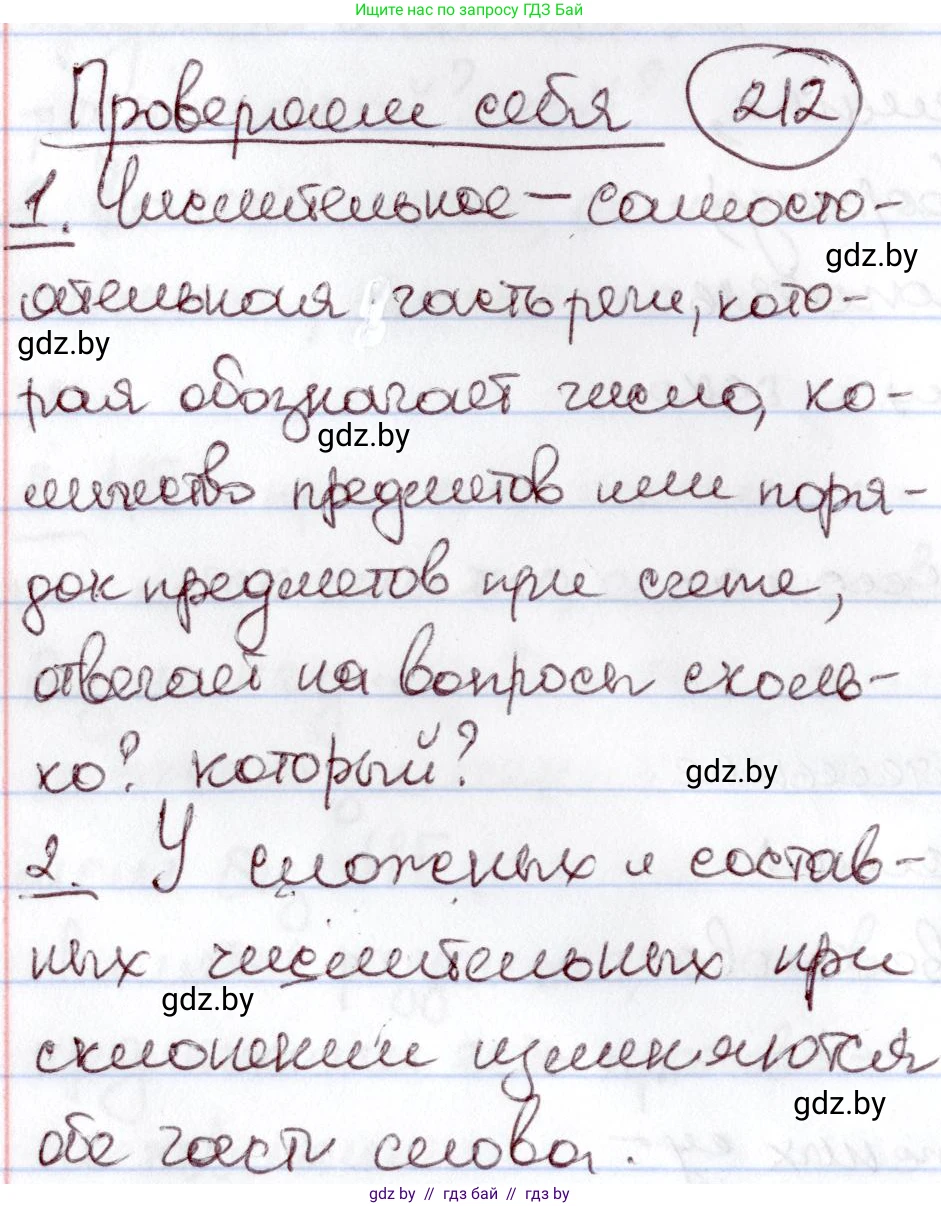 Ищите нас по запросу ГДЗ Бай
Проверяем себя 212
1. Числительное – самосто-
gdz.by
ятельная часть речи, кото-
gdz.by
рая обозначает число, ко-
gdz.by
личество предметов или поря-
док предметов при счете,
отвечает на вопросы сколь-
ко? который?
gdz.by
2. У сложных и состав-
ных числительных при
gdz.by
склонении изменяются
gdz.by
обе части слова.
gdz.by // гдз бай // гдз by